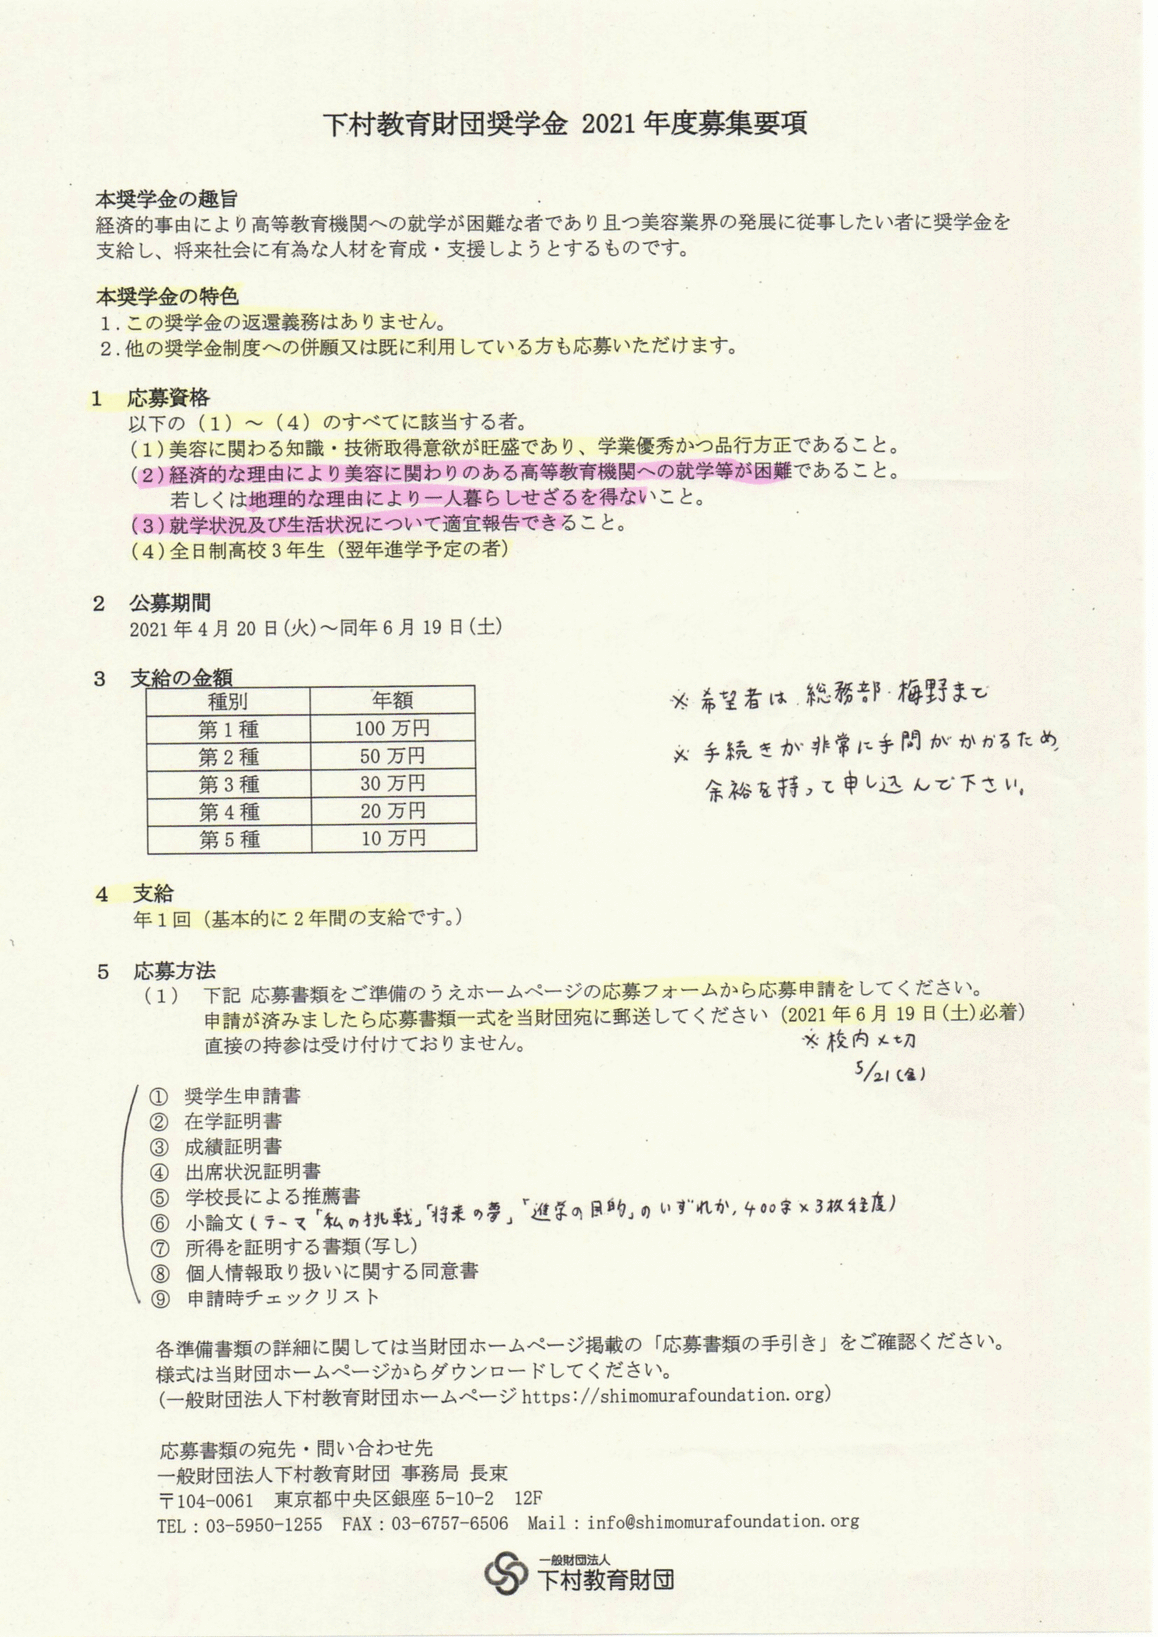 下村教育財団奨学金 2021年度募集要項
本奨学金の趣旨
経済的事由により高等教育機関への就学が困難な者であり且つ美容業界の発展に従事したい者に奨学金を
支給し、将来社会に有為な人材を育成・支援しようとするものです。
本奨学金の特色
1.この奨学金の返還義務はありません。
2.他の奨学金制度への併願又は既に利用している方も応募いただけます。
1 応募資格
以下の（1）～（4）のすべてに該当する者。
(1)美容に関わる知識・技術取得意欲が旺盛であり、学業優秀かつ品行方正であること。
(2)経済的な理由により美容に関わりのある高等教育機関への就学等が困難であること。
若しくは地理的な理由により一人暮らしせざるを得ないこと。
(3)就学状況及び生活状況について適宜報告できること。
(4)全日制高校3年生（翌年進学予定の者）
2 公募期間
2021年4月20日(火)～同年6月19日(土)
3 支給の金額
種別 年額
第1種 100万円
第2種 50万円
第3種 30万円
第4種 20万円
第5種 10万円
※希望者は 総務部・梅野まで
※手続きが非常に手間がかかるため、
余裕を持って申し込んで下さい。
4 支給
年1回（基本的に2年間の支給です。）
5 応募方法
（1） 下記 応募書類をご準備のうえホームページの応募フォームから応募申請をしてください。
申請が済みましたら応募書類一式を当財団宛に郵送してください（2021年6月19日(土)必着）
直接の持参は受け付けておりません。
※校内〆切
5/21(金)
① 奨学生申請書
② 在学証明書
③ 成績証明書
④ 出席状況証明書
⑤ 学校長による推薦書
⑥ 小論文(テーマ「私の挑戦」「将来の夢」「進学の目的」のいずれか、400字×3枚程度)
⑦ 所得を証明する書類(写し)
⑧ 個人情報取り扱いに関する同意書
⑨ 申請時チェックリスト
各準備書類の詳細に関しては当財団ホームページ掲載の「応募書類の手引き」をご確認ください。
様式は当財団ホームページからダウンロードしてください。
(一般財団法人下村教育財団ホームページ https://shimomurafoundation.org)
応募書類の宛先・問い合わせ先
一般財団法人下村教育財団 事務局 長束
〒104-0061 東京都中央区銀座5-10-2 12F
TEL：03-5950-1255 FAX：03-6757-6506 Mail：info@shimomurafoundation.org
一般財団法人
下村教育財団